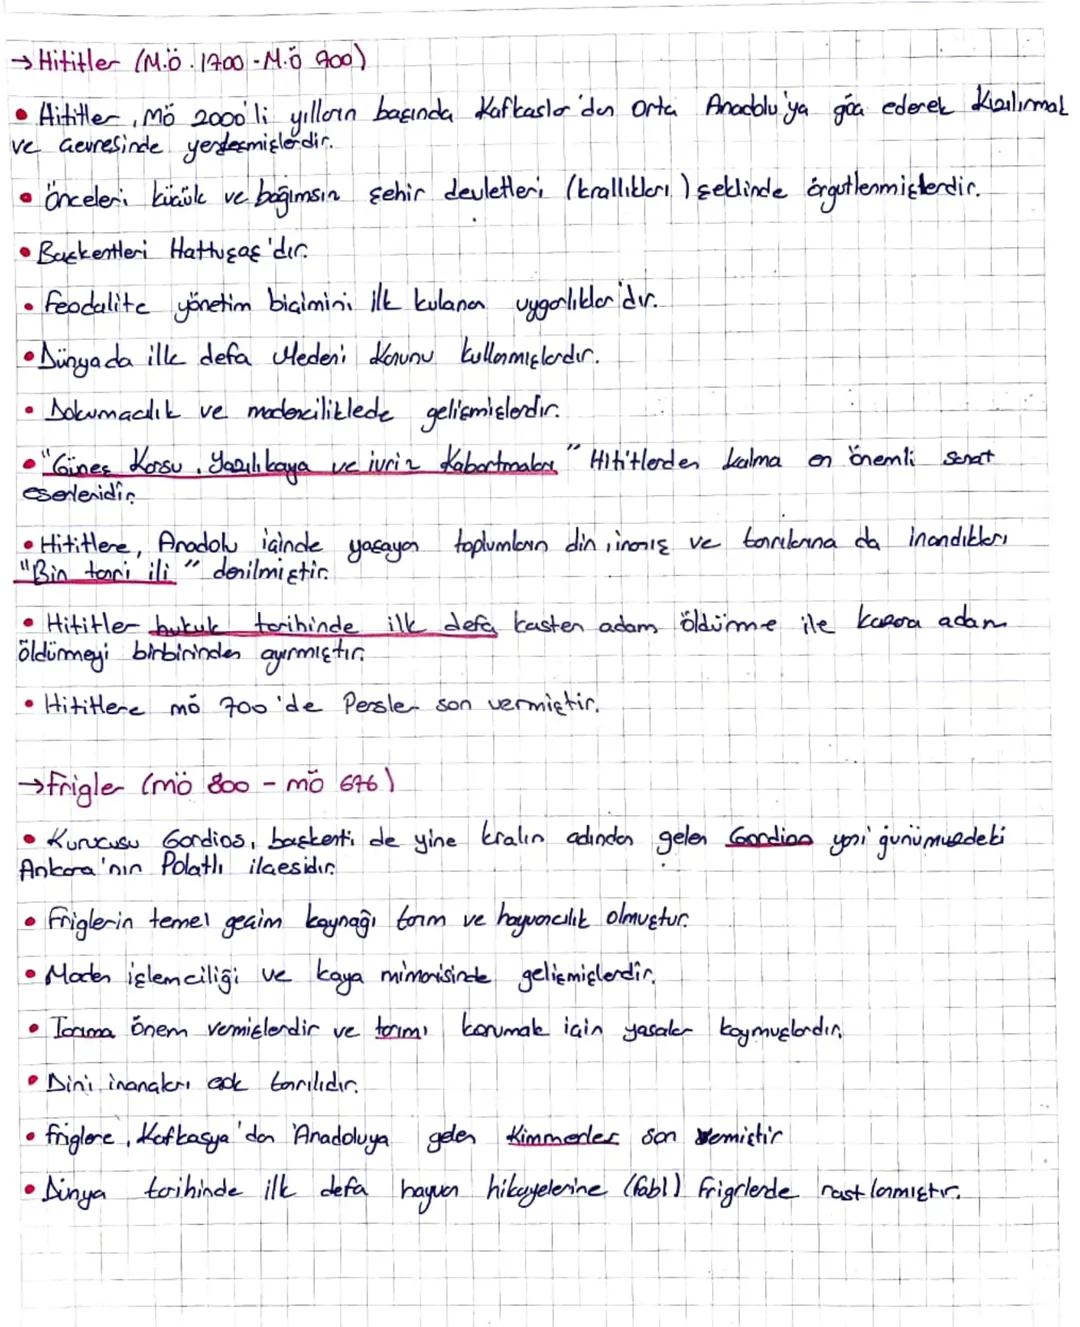 → Hititler (M.ö. 1700 - M.ö 900)
• Hititler, Mö 2000'li yılların başında Kafkaslar'dan Orta Anadolu'ya göç ederek Kızılırmak
ve çevresinde yerleşmişlerdir.
• Önceleri küçük ve bağımsın şehir devletleri (krallıkları) şeklinde örgutlenmişlerdir.
• Başkentleri Hattuşaş'dır.
• Feodalite yönetim biçimini ilk kulanan uygarlıklar'dır.
• Dünyada ilk defa Medeni Kanunu kullanmışlardır.
• Dokumacılık ve madenciliklede gelişmişlerdir.
• "Güneş Kursu, Yazılıkaya ve ivriz Kabartmaları" Hititlerden kalma en önemli sanat
eserleridir.
• Hititlere, Anadolu içinde yaşayan toplumların din, inanış ve tanrılarına da inandıkları
"Bin tanrı ili" denilmiştir.
• Hititler hukuk tarihinde ilk defa kasten adam öldürme ile kazara adam
öldürmeyi birbirinden ayırmıştır.
• Hititlere mö 700'de Persler son vermiştir.
→ Frigler (mö 800 - mö 676)
• Kurucusu Gordios, başkenti de yine kralın adından gelen Gordion yani günümüzdeki
Ankara'nın Polatlı ilçesidir.
• Friglerin temel geçim kaynağı tarım ve hayvancılık olmuştur.
• Maden işlemciliği ve kaya mimarisinde gelişmişlerdir.
• Tarıma önem vermişlerdir ve tarımı korumak için yasalar koymuşlardır.
• Dini inançları çok tanrılıdır.
• Friglere, Kafkasya'dan Anadoluya gelen Kimmerler son vermiştir
• Dünya tarihinde ilk defa hayvan hikayelerine (fabl) Frigrlerde rastlanmıştır.